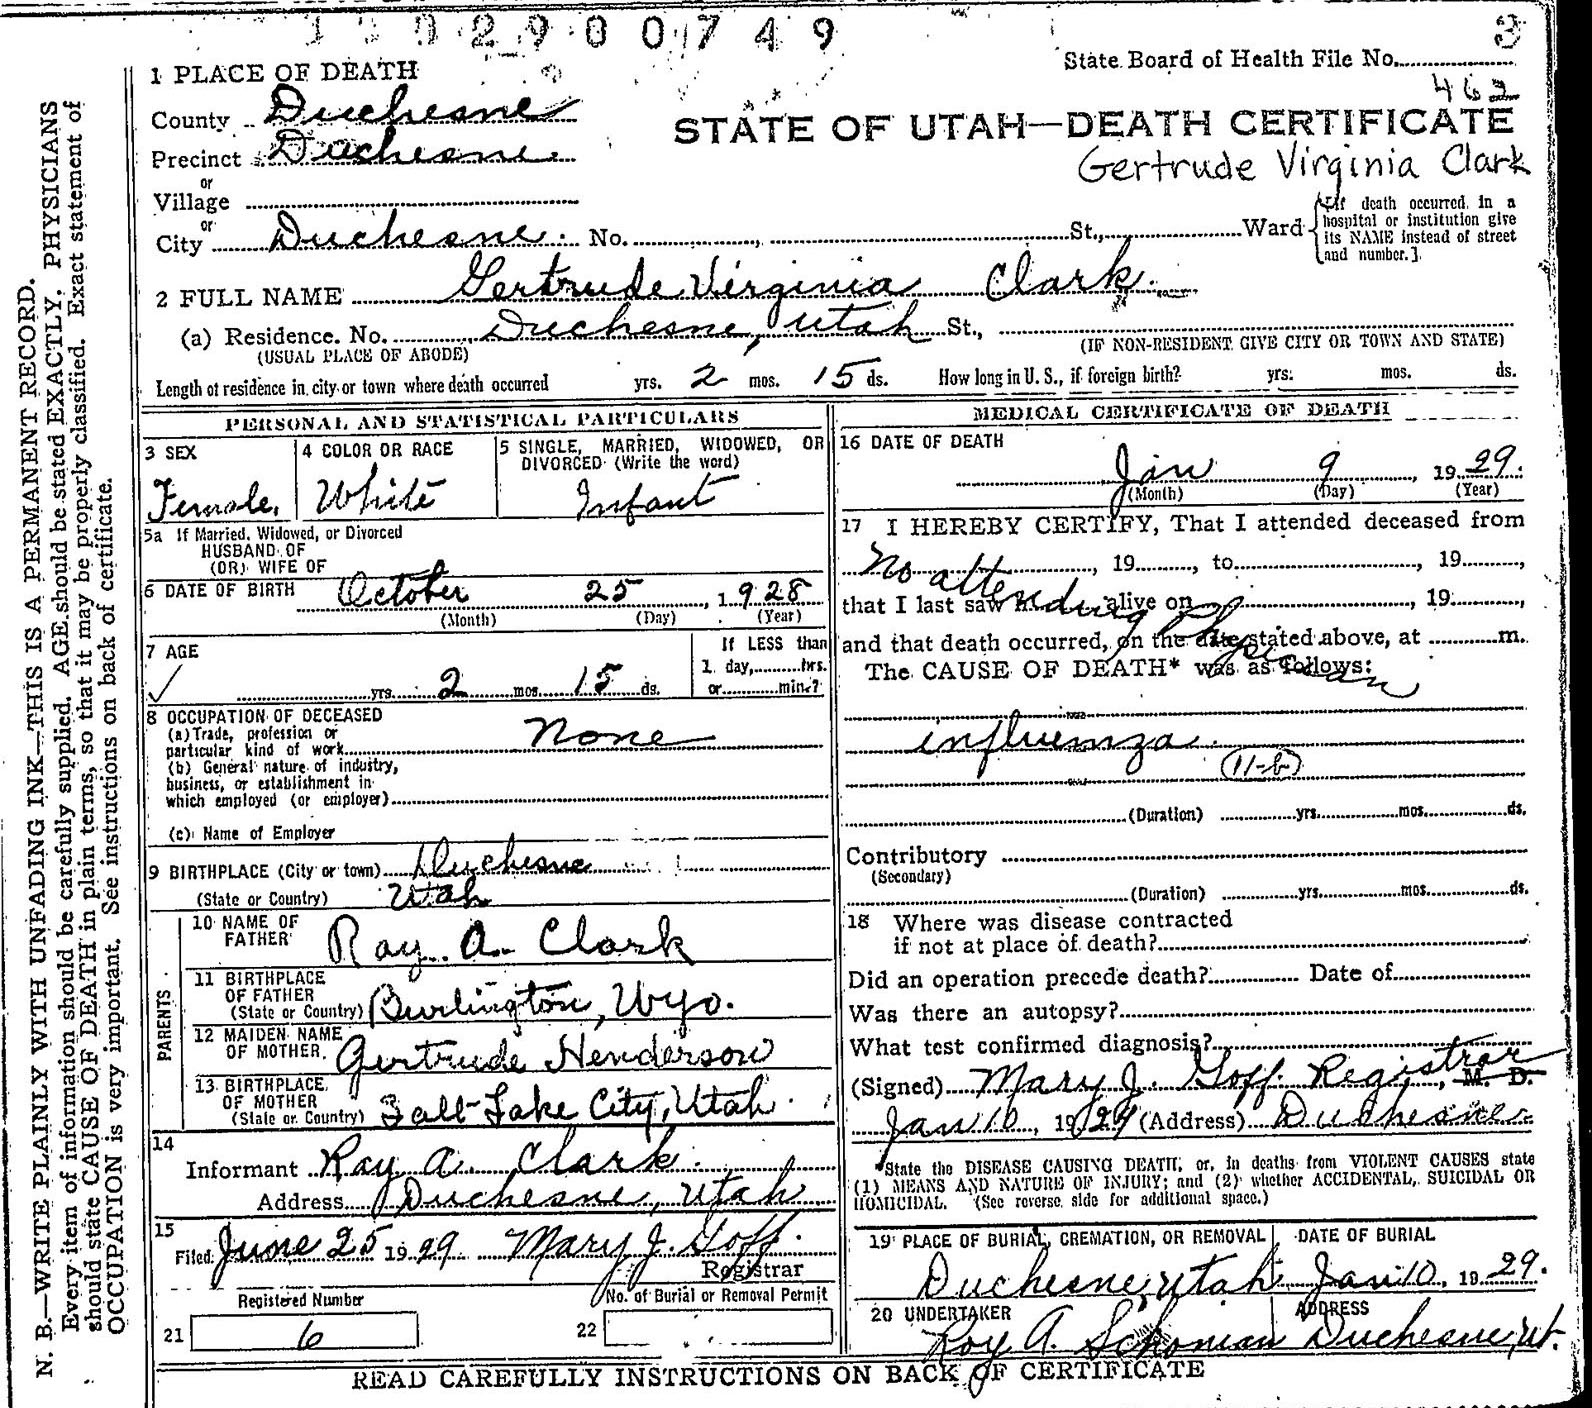 2 9 0 0 7 4 9
3
State Board of Health File No.
462
1 PLACE OF DEATH
County Duchesne
STATE OF UTAH—DEATH CERTIFICATE
Precinct Duchesne.
Gertrude Virginia Clark
or
Village
or
City Duchesne. No. St., Ward
{If death occurred in a
hospital or institution give
its NAME instead of street
and number.]
2 FULL NAME Gertrude Virginia Clark.
(a) Residence. No. Duchesne, Utah St.,
(USUAL PLACE OF ABODE) (IF NON-RESIDENT GIVE CITY OR TOWN AND STATE)
Length of residence in city or town where death occurred yrs. 2 mos. 15 ds. How long in U. S., if foreign birth? yrs. mos. ds.
PERSONAL AND STATISTICAL PARTICULARS
3 SEX
Female.
4 COLOR OR RACE
White
5 SINGLE, MARRIED, WIDOWED, OR
DIVORCED (Write the word)
Infant
5a If Married, Widowed, or Divorced
HUSBAND OF
(OR) WIFE OF
6 DATE OF BIRTH October 25, 1928
(Month) (Day) (Year)
7 AGE
yrs. 2 mos. 15 ds.
If LESS than
1 day, hrs.
or min.?
8 OCCUPATION OF DECEASED
(a) Trade, profession or
particular kind of work None
(b) General nature of industry,
business, or establishment in
which employed (or employer)
(c) Name of Employer
9 BIRTHPLACE (City or town) Duchesne
(State or Country) Utah
PARENTS
10 NAME OF
FATHER Ray A. Clark
11 BIRTHPLACE
OF FATHER
(State or Country) Burlington, Wyo.
12 MAIDEN NAME
OF MOTHER. Gertrude Henderson
13 BIRTHPLACE
OF MOTHER
(State or Country) Salt Lake City, Utah.
14
Informant Ray A. Clark.
Address Duchesne, Utah
15
Filed June 25 1929 Mary J. Goff.
Registrar
Registered Number
21 6
No. of Burial or Removal Permit
22
MEDICAL CERTIFICATE OF DEATH
16 DATE OF DEATH
Jan 9, 1929.
(Month) (Day) (Year)
17 I HEREBY CERTIFY, That I attended deceased from
, 19, to, 19,
No attending Physician
that I last saw h alive on, 19,
and that death occurred, on the date stated above, at m.
The CAUSE OF DEATH* was as follows:
influenza.
11-b
(Duration) yrs. mos. ds.
Contributory
(Secondary)
(Duration) yrs. mos. ds.
18 Where was disease contracted
if not at place of death?
Did an operation precede death? Date of
Was there an autopsy?
What test confirmed diagnosis?
(Signed) Mary J. Goff. Registrar, M. D.
Jan 10, 1929 (Address) Duchesne
*State the DISEASE CAUSING DEATH, or, in deaths from VIOLENT CAUSES state
(1) MEANS AND NATURE OF INJURY; and (2) whether ACCIDENTAL, SUICIDAL OR
HOMICIDAL. (See reverse side for additional space.)
19 PLACE OF BURIAL, CREMATION, OR REMOVAL
Duchesne, Utah
DATE OF BURIAL
Jan 10, 1929.
20 UNDERTAKER
Roy A. Schonian
ADDRESS
Duchesne, Ut.
READ CAREFULLY INSTRUCTIONS ON BACK OF CERTIFICATE
N. B.—WRITE PLAINLY WITH UNFADING INK—THIS IS A PERMANENT RECORD.
Every item of information should be carefully supplied. AGE should be stated EXACTLY. PHYSICIANS
should state CAUSE OF DEATH in plain terms, so that it may be properly classified. Exact statement of
OCCUPATION is very important. See instructions on back of certificate.